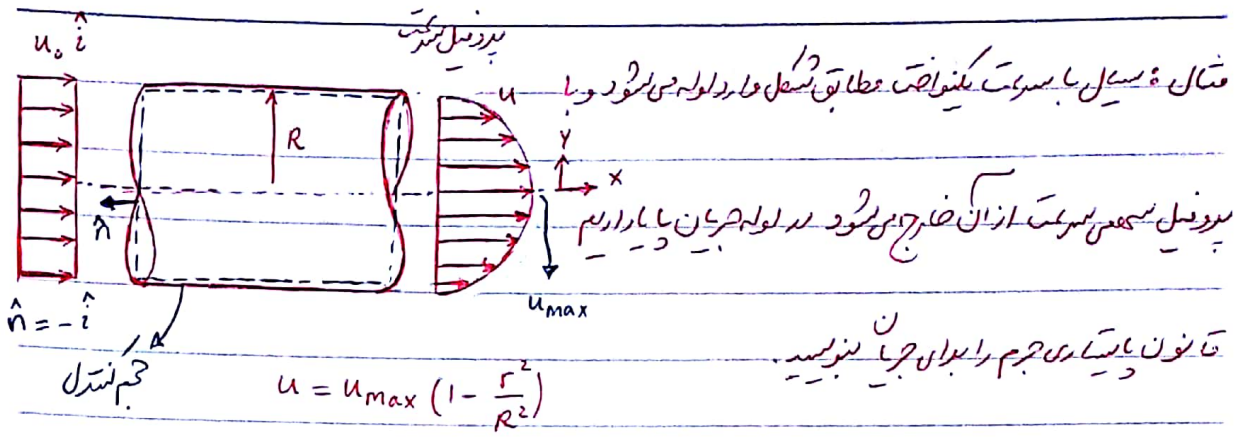 پروفیل سرعت
u₀ î
مثال : سیال با سرعت یکنواخت مطابق شکل وارد لوله می‌شود و با
u
R
Y
X
n̂
پروفیل سهمی سرعت از آن خارج می‌شود در لوله جریان پایا داریم
u max
n̂ = -î
قانون پایستاری جرم را برای جریان بنویسید.
حجم کنترل
u = u max (1 - r²/R²)